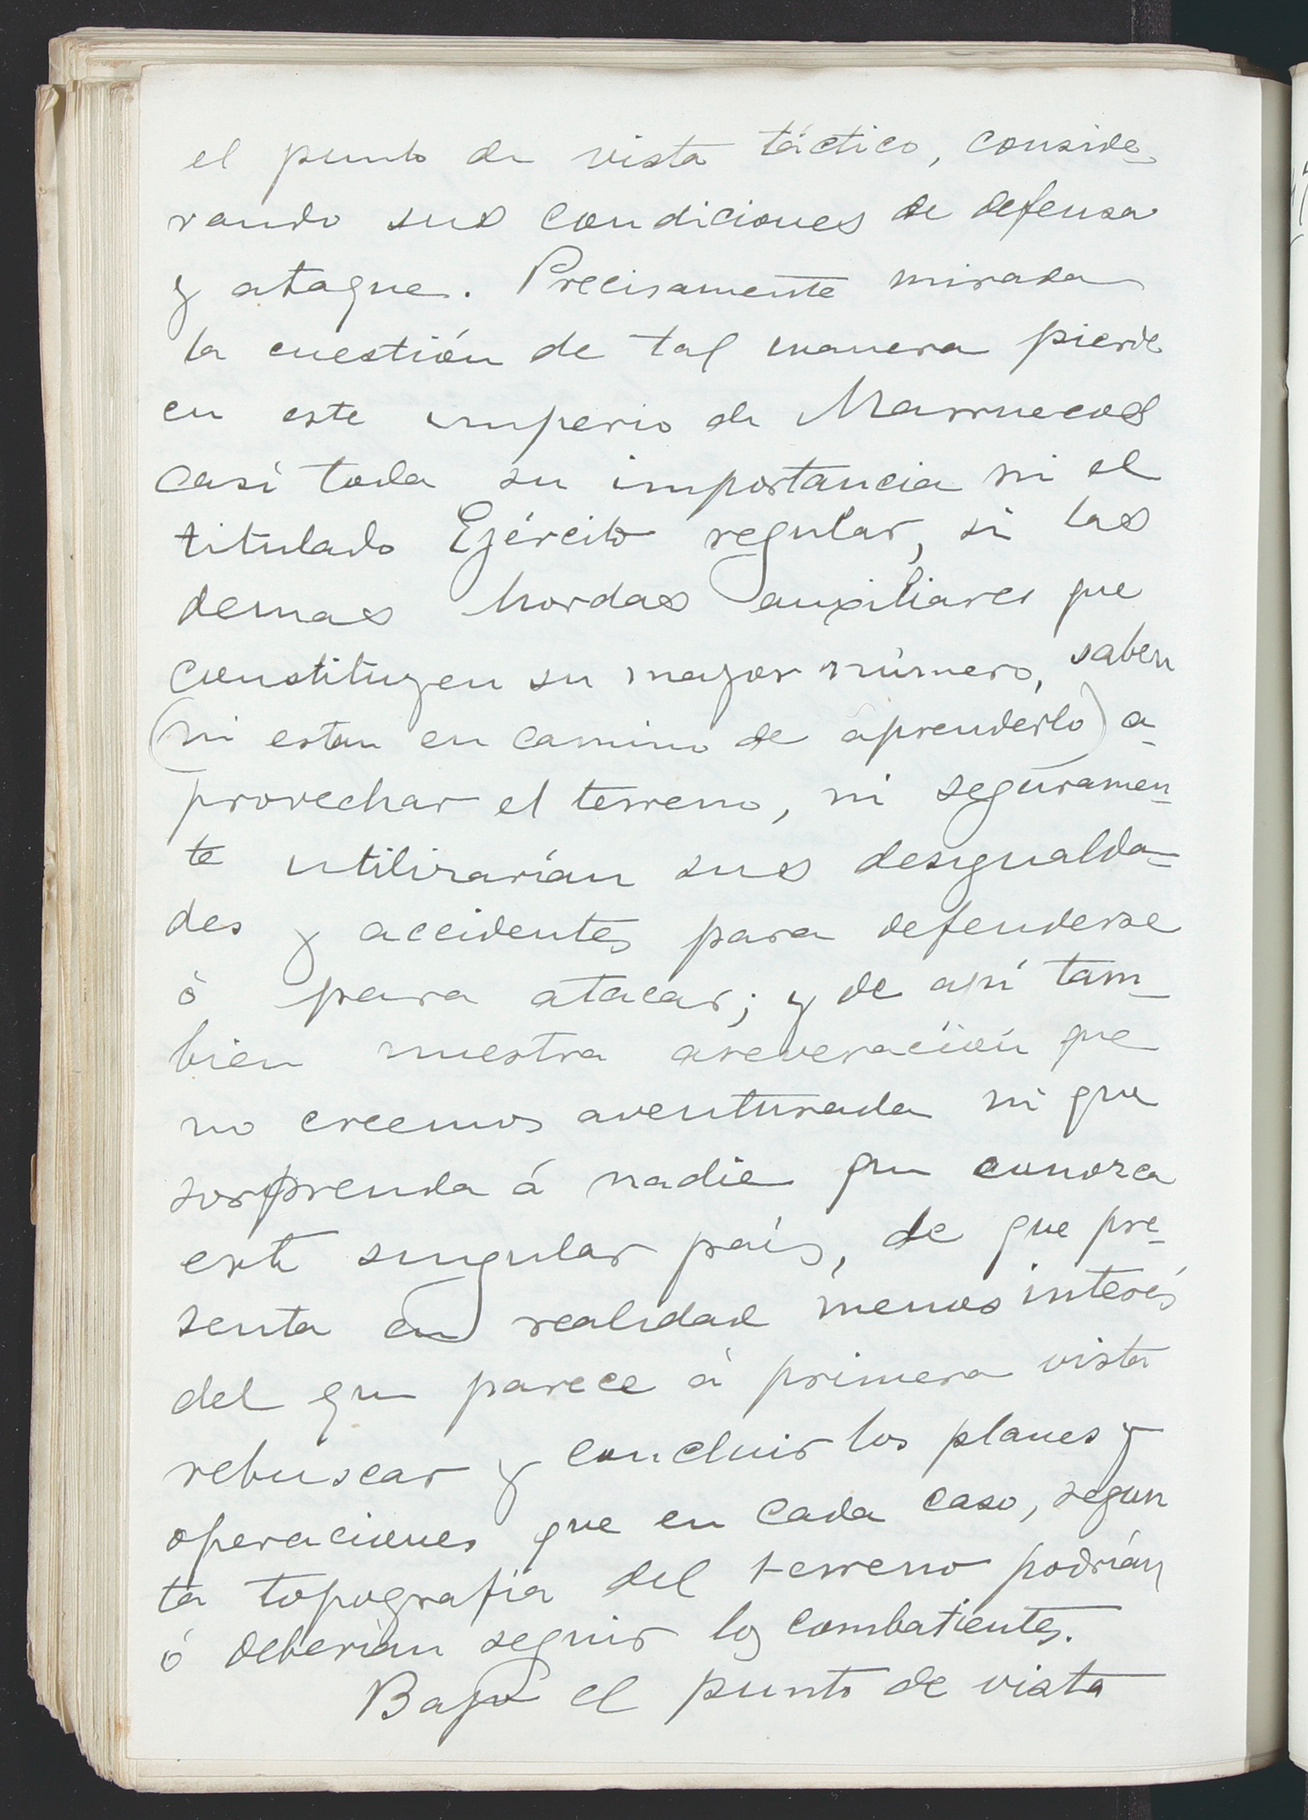 el punto de vista táctico, conside-
rando sus condiciones de defensa
y ataque. Precisamente mirada
la cuestión de tal manera pierde
en este imperio de Marruecos
casi toda su importancia ni el
titulado Ejército regular, ni las
demas hordas auxiliares que
constituyen su mayor número, saben
(ni estan en camino de aprenderlo) a-
provechar el terreno, ni seguramen-
te utilizarían sus desigualda-
des y accidentes para defenderse
ó para atacar; y de aquí tam-
bien nuestra aseveración que
no creemos aventurada ni que
sorprenda á nadie que conozca
este singular país, de que pre-
senta en realidad menos interés
del que parece á primera vista
rebuscar y concluir los planes y
operaciones que en cada caso, segun
la topografía del terreno podrían
ó deberían seguir los combatientes.
Bajo el punto de vista